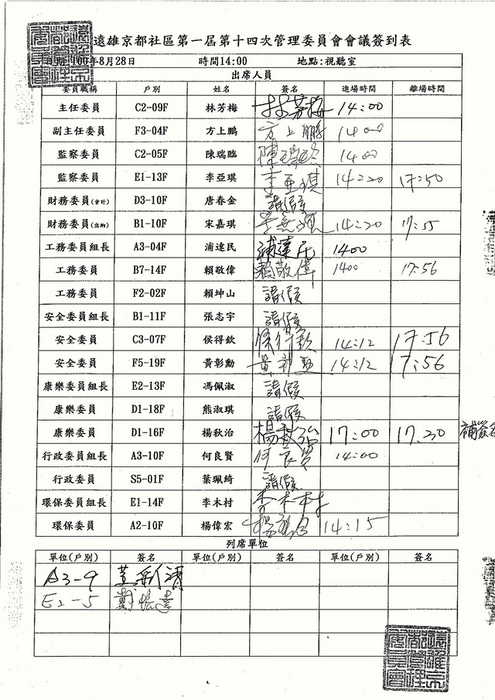 遠雄京都社區第一屆第十四次管理委員會會議簽到表
100年8月28日 時間14:00 地點:視聽室
出席人員
委員職稱 戶別 姓名 簽名 進場時間 離場時間
主任委員 C2-09F 林芳梅 林芳梅 14:00
副主任委員 F3-04F 方上鵬 方上鵬 1400
監察委員 C2-05F 陳瑞臨 1400
監察委員 E1-13F 李亞琪 李亞琪 14:20 17:50
財務委員(會計) D3-10F 唐春金 請假
財務委員(出納) B1-10F 宋嘉琪 14:20 17:55
工務委員組長 A3-04F 浦達民 浦達民 1400
工務委員 B7-14F 賴敬偉 賴敬偉 1400 17:56
工務委員 F2-02F 賴坤山 請假
安全委員組長 B1-11F 張志宇 請假
安全委員 C3-07F 侯得欽 侯得欽 14:12 17:56
安全委員 F5-19F 黃彰勳 14:12 17:56
康樂委員組長 E2-13F 馮佩淑 請假
康樂委員 D1-18F 熊淑琪 請假
康樂委員 D1-16F 楊秋治 楊秋治 17:00 17.30 補簽名
行政委員組長 A3-10F 何良賢 何良賢 14:00
行政委員 S5-01F 葉珮綺 請假
環保委員組長 E1-14F 李木村 李木村
環保委員 A2-10F 楊偉宏 14:15
列席單位
單位(戶別) 簽名 單位(戶別) 簽名 單位(戶別) 簽名
A3-9
E2-5